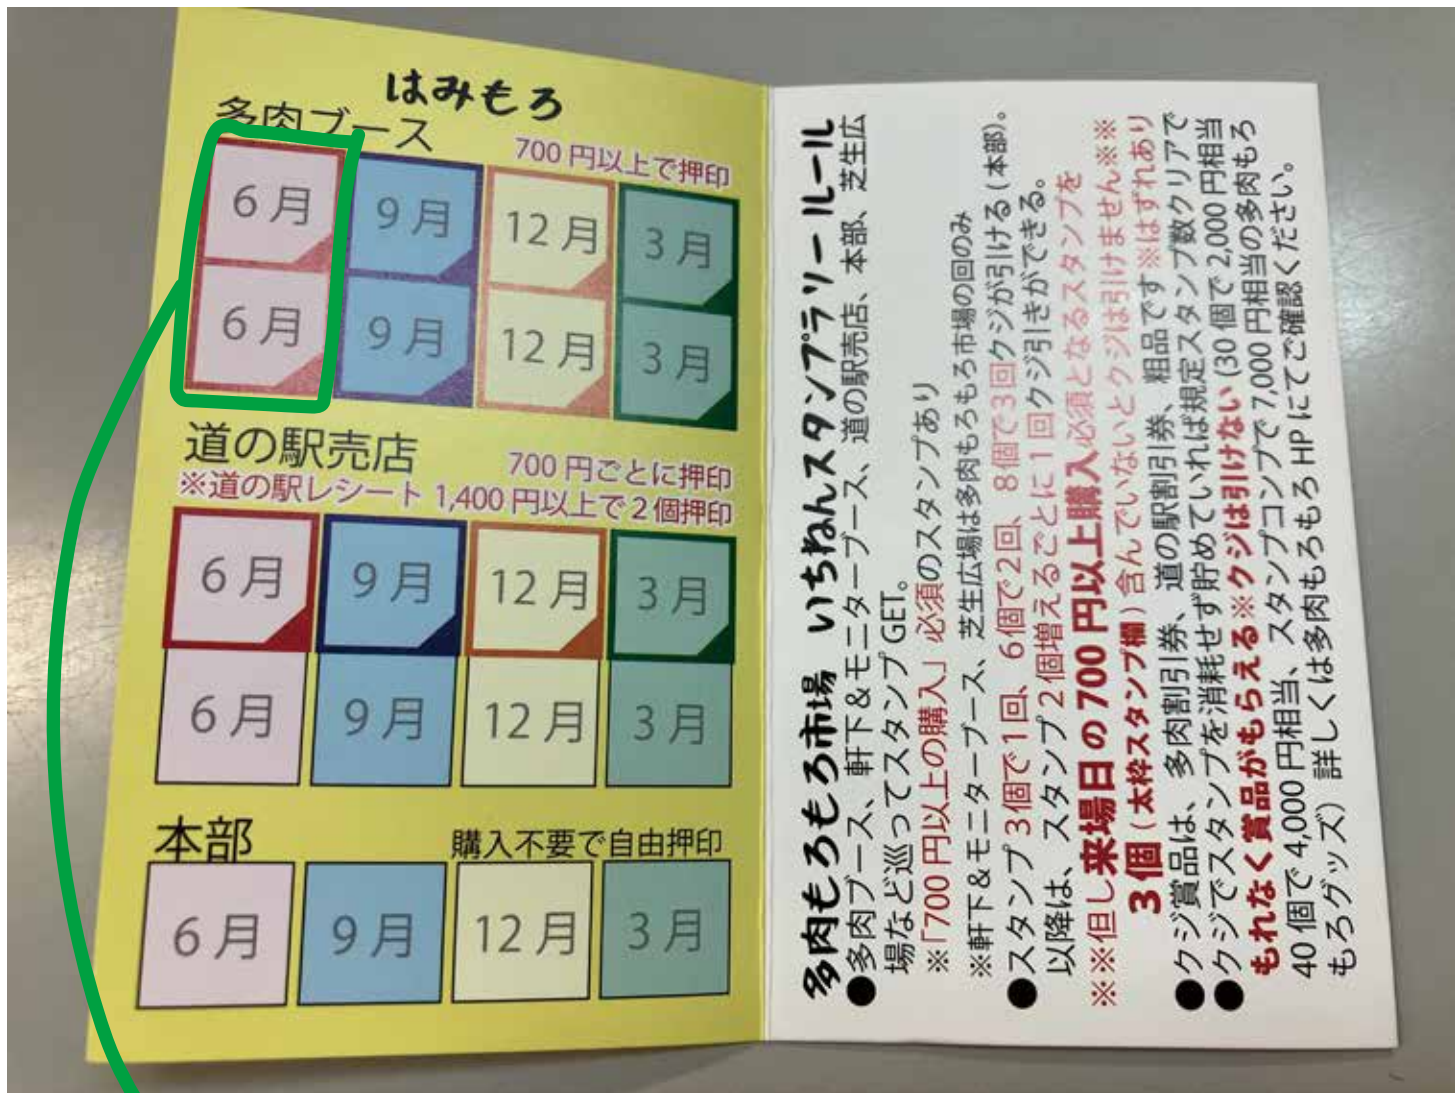 はみもろ
多肉ブース
700 円以上で押印
6 月 9 月 12 月 3 月
6 月 9 月 12 月 3 月
道の駅売店
700 円ごとに押印
※道の駅レシート 1,400 円以上で 2 個押印
6 月 9 月 12 月 3 月
6 月 9 月 12 月 3 月
本部
購入不要で自由押印
6 月 9 月 12 月 3 月
多肉もろもろ市場 いちねんスタンプラリールール
●多肉ブース、軒下&モニターブース、道の駅売店、本部、芝生広
場など巡ってスタンプ GET。
※「700 円以上の購入」必須のスタンプあり
※軒下&モニターブース、芝生広場は多肉もろもろ市場の回のみ
●スタンプ 3個で1回、6個で2回、8個で3回クジが引ける(本部)。
以降は、スタンプ 2 個増えるごとに 1 回クジ引きができる。
※※但し来場日の 700 円以上購入必須となるスタンプを
3個(太枠スタンプ欄)含んでいないとクジは引けません※※
●クジ賞品は、多肉割引券、道の駅割引券、粗品です※はずれあり
●クジでスタンプを消耗せず貯めていれば規定スタンプ数クリアで
もれなく賞品がもらえる※クジは引けない (30 個で 2,000 円相当
40 個で 4,000 円相当、スタンプコンプで 7,000 円相当の多肉もろ
もろグッズ) 詳しくは多肉もろもろ HP にてご確認ください。